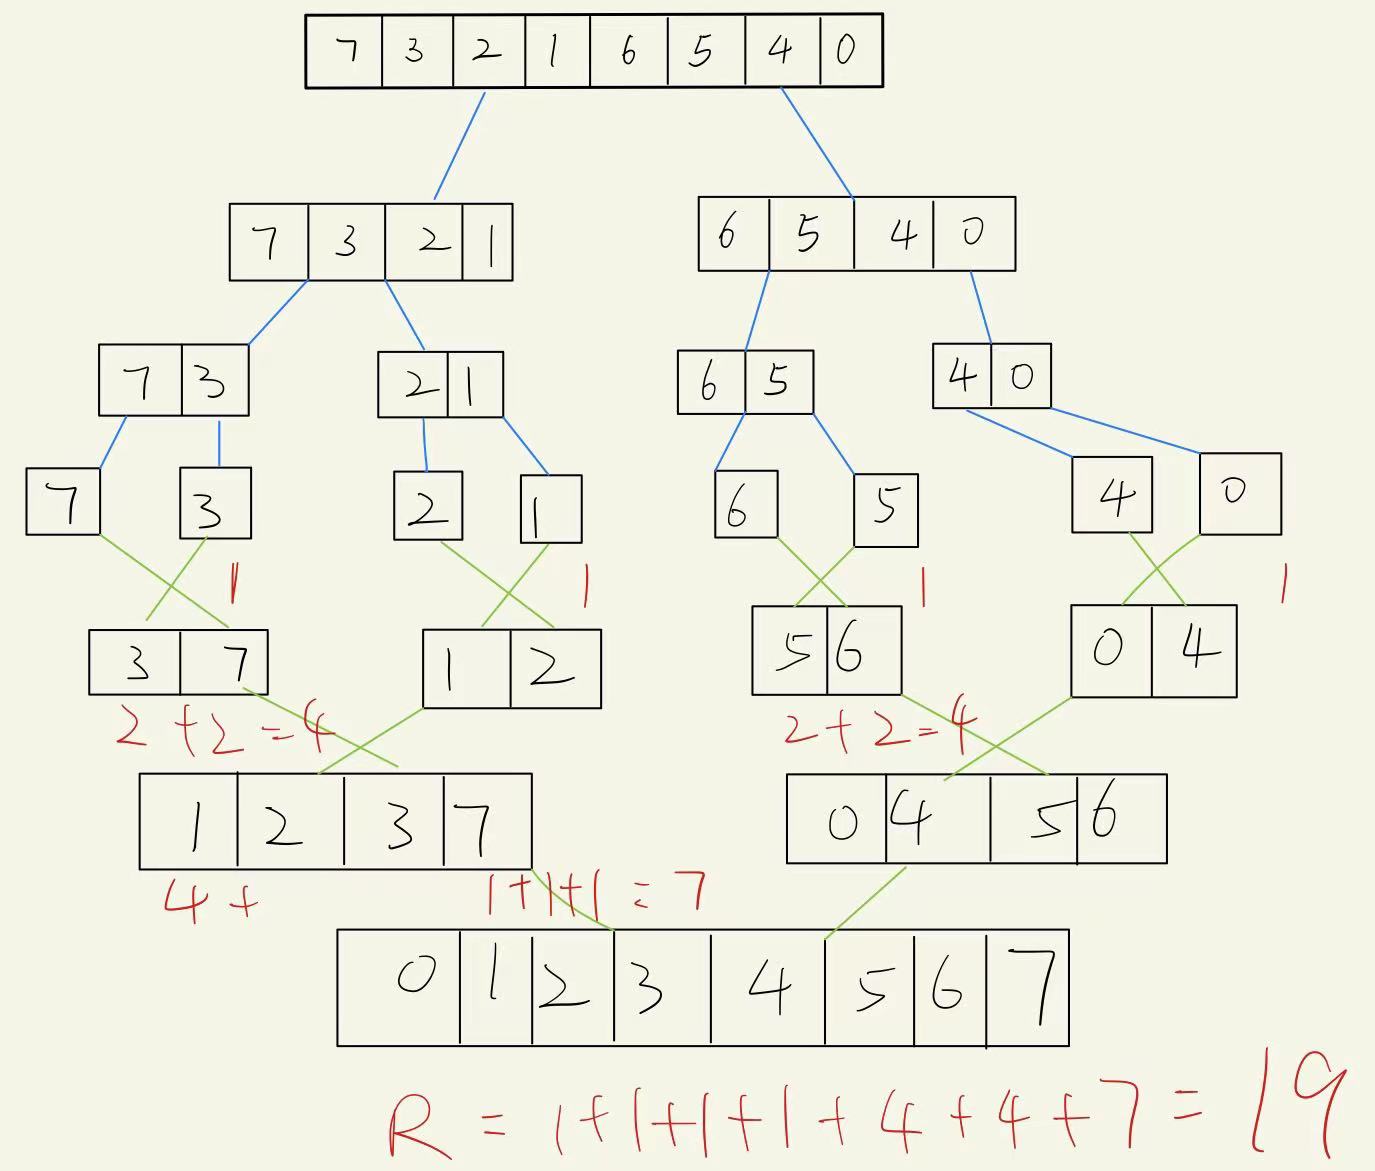 7 3 2 1 6 5 4 0
7 3 2 1 6 5 4 0
7 3 2 1 6 5 4 0
7 3 2 1 6 5 4 0
1 1 1 1
3 7 1 2 5 6 0 4
2+2=4 2+2=4
1 2 3 7 0 4 5 6
4+ 1+1+1=7
0 1 2 3 4 5 6 7
R = 1+1+1+1+4+4+7=19